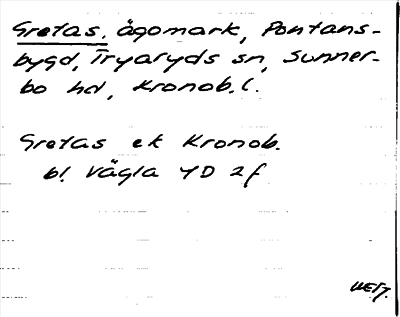 Gretas, ägomark, Pontans-
bygd, Tryaryds sn, Sunner-
bo hd, Kronob. l.
Gretas ek Kronob.
bl. Vägla 4D 2f